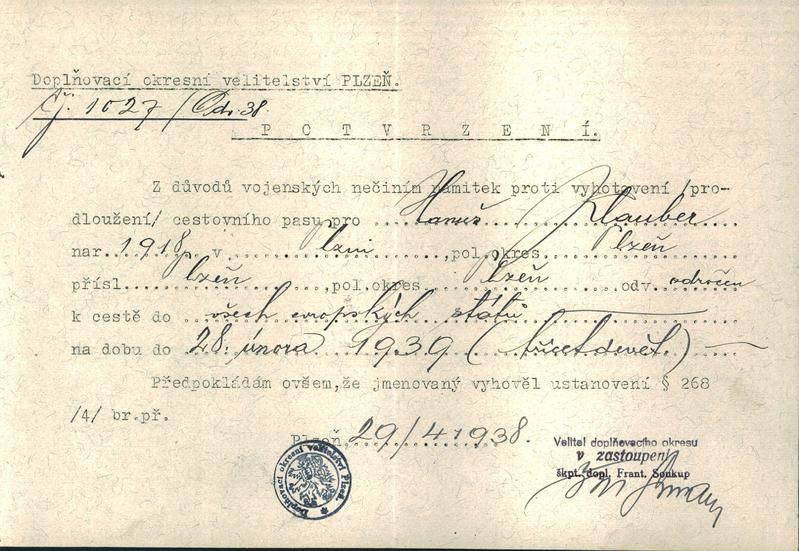 Doplňovací okresní velitelství PLZEŇ.
Čj. 1027/Odv. 38.
POTVRZENÍ.
Z důvodů vojenských nečiním námitek proti vyhotovení /pro-
dloužení/ cestovního pasu pro Hanuš Klauber
nar. 1918 v Plzni, pol. okres Plzeň
přísl. Plzeň, pol. okres Plzeň odv. odročen
k cestě do všech evropských států
na dobu do 28. února 1939 (třicetdevět.)
Předpokládám ovšem, že jmenovaný vyhověl ustanovení § 268
/4/ br.př.
Plzeň, 29/4 1938.
Velitel doplňovacího okresu
v zastoupení
škpt. dopl. Frant. Soukup
Doplňovací okresní velitelství Plzeň.